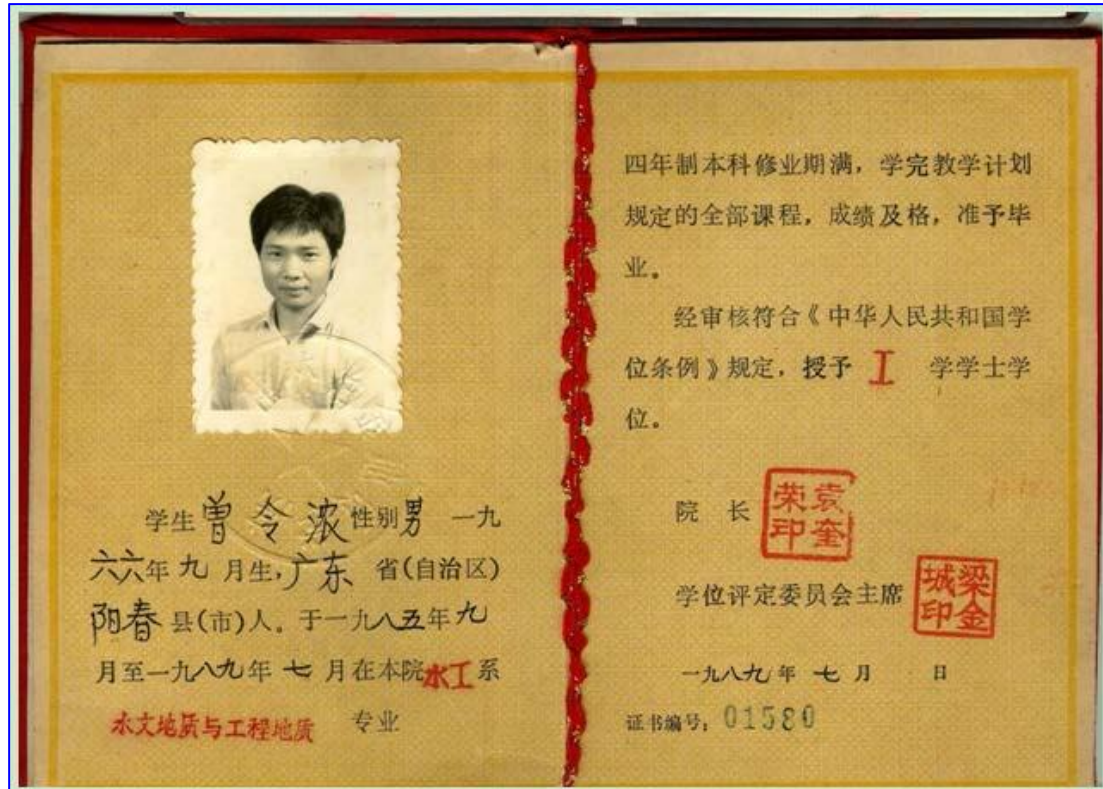 学生曾令浓性别男 一九
六六年九月生,广东 省(自治区)
阳春县(市)人。于一九八五年九
月至一九八九年七月在本院水工系
水文地质与工程地质 专业
四年制本科修业期满，学完教学计划
规定的全部课程，成绩及格，准予毕
业。
经审核符合《中华人民共和国学
位条例》规定，授予 工 学学士学
位。
院长 袁奎荣印
学位评定委员会主席 梁金城印
一九八九年七月 日
证书编号：01580